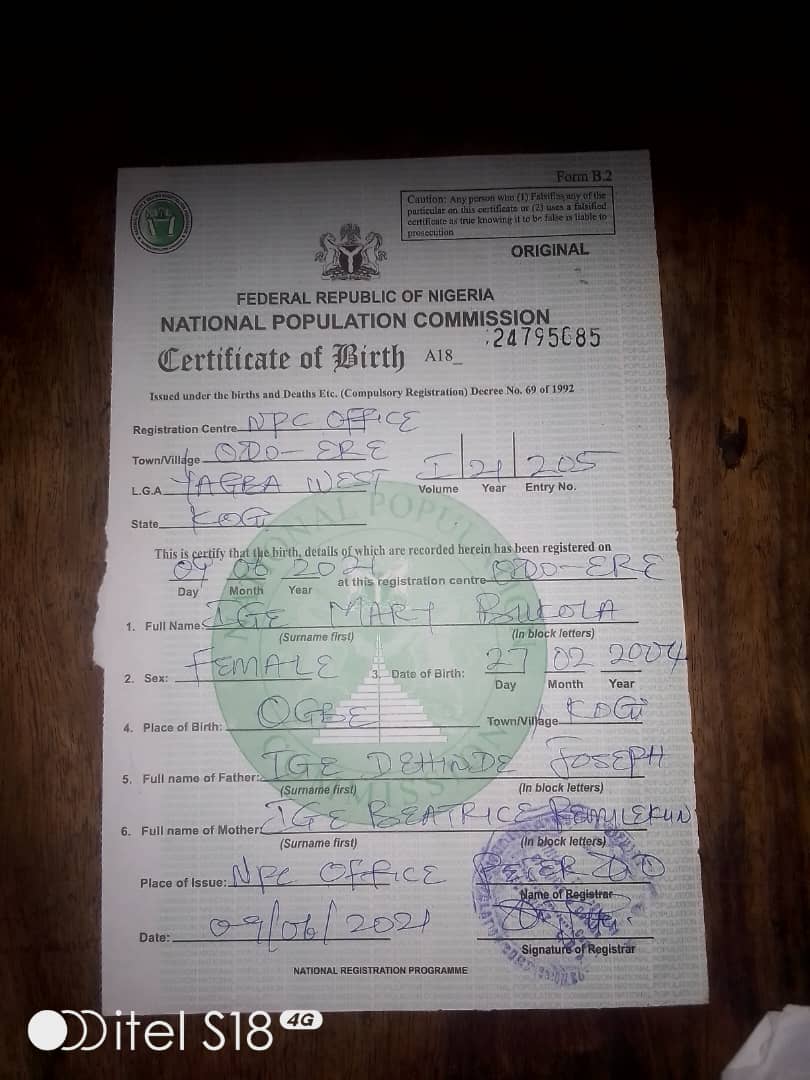 Form B.2
Caution: Any person who (1) Falsifies any of the
particular on this certificate or (2) uses a falsified
certificate as true knowing it to be false is liable to
prosecution
ORIGINAL
FEDERAL REPUBLIC OF NIGERIA
NATIONAL POPULATION COMMISSION
Certificate of Birth A18_ 24795685
Issued under the births and Deaths Etc. (Compulsory Registration) Decree No. 69 of 1992
Registration Centre NPC OFFICE
Town/Village ODO-ERE
L.G.A YAGBA WEST I 21 205
Volume Year Entry No.
State KOGI
This is certify that the birth, details of which are recorded herein has been registered on
09 06 2021 at this registration centre ODO-ERE
Day Month Year
1. Full Name IGE MARY BUKOLA
(Surname first) (In block letters)
2. Sex: FEMALE 3. Date of Birth: 27 02 2004
Day Month Year
4. Place of Birth: OGBE Town/Village KOGI
5. Full name of Father: IGE DEHINDE JOSEPH
(Surname first) (In block letters)
6. Full name of Mother IGE BEATRICE REMILEKUN
(Surname first) (In block letters)
Place of Issue: NPC OFFICE PETER
Name of Registrar
Date: 09/06/2021
Signature of Registrar
NATIONAL REGISTRATION PROGRAMME
itel S18 4G